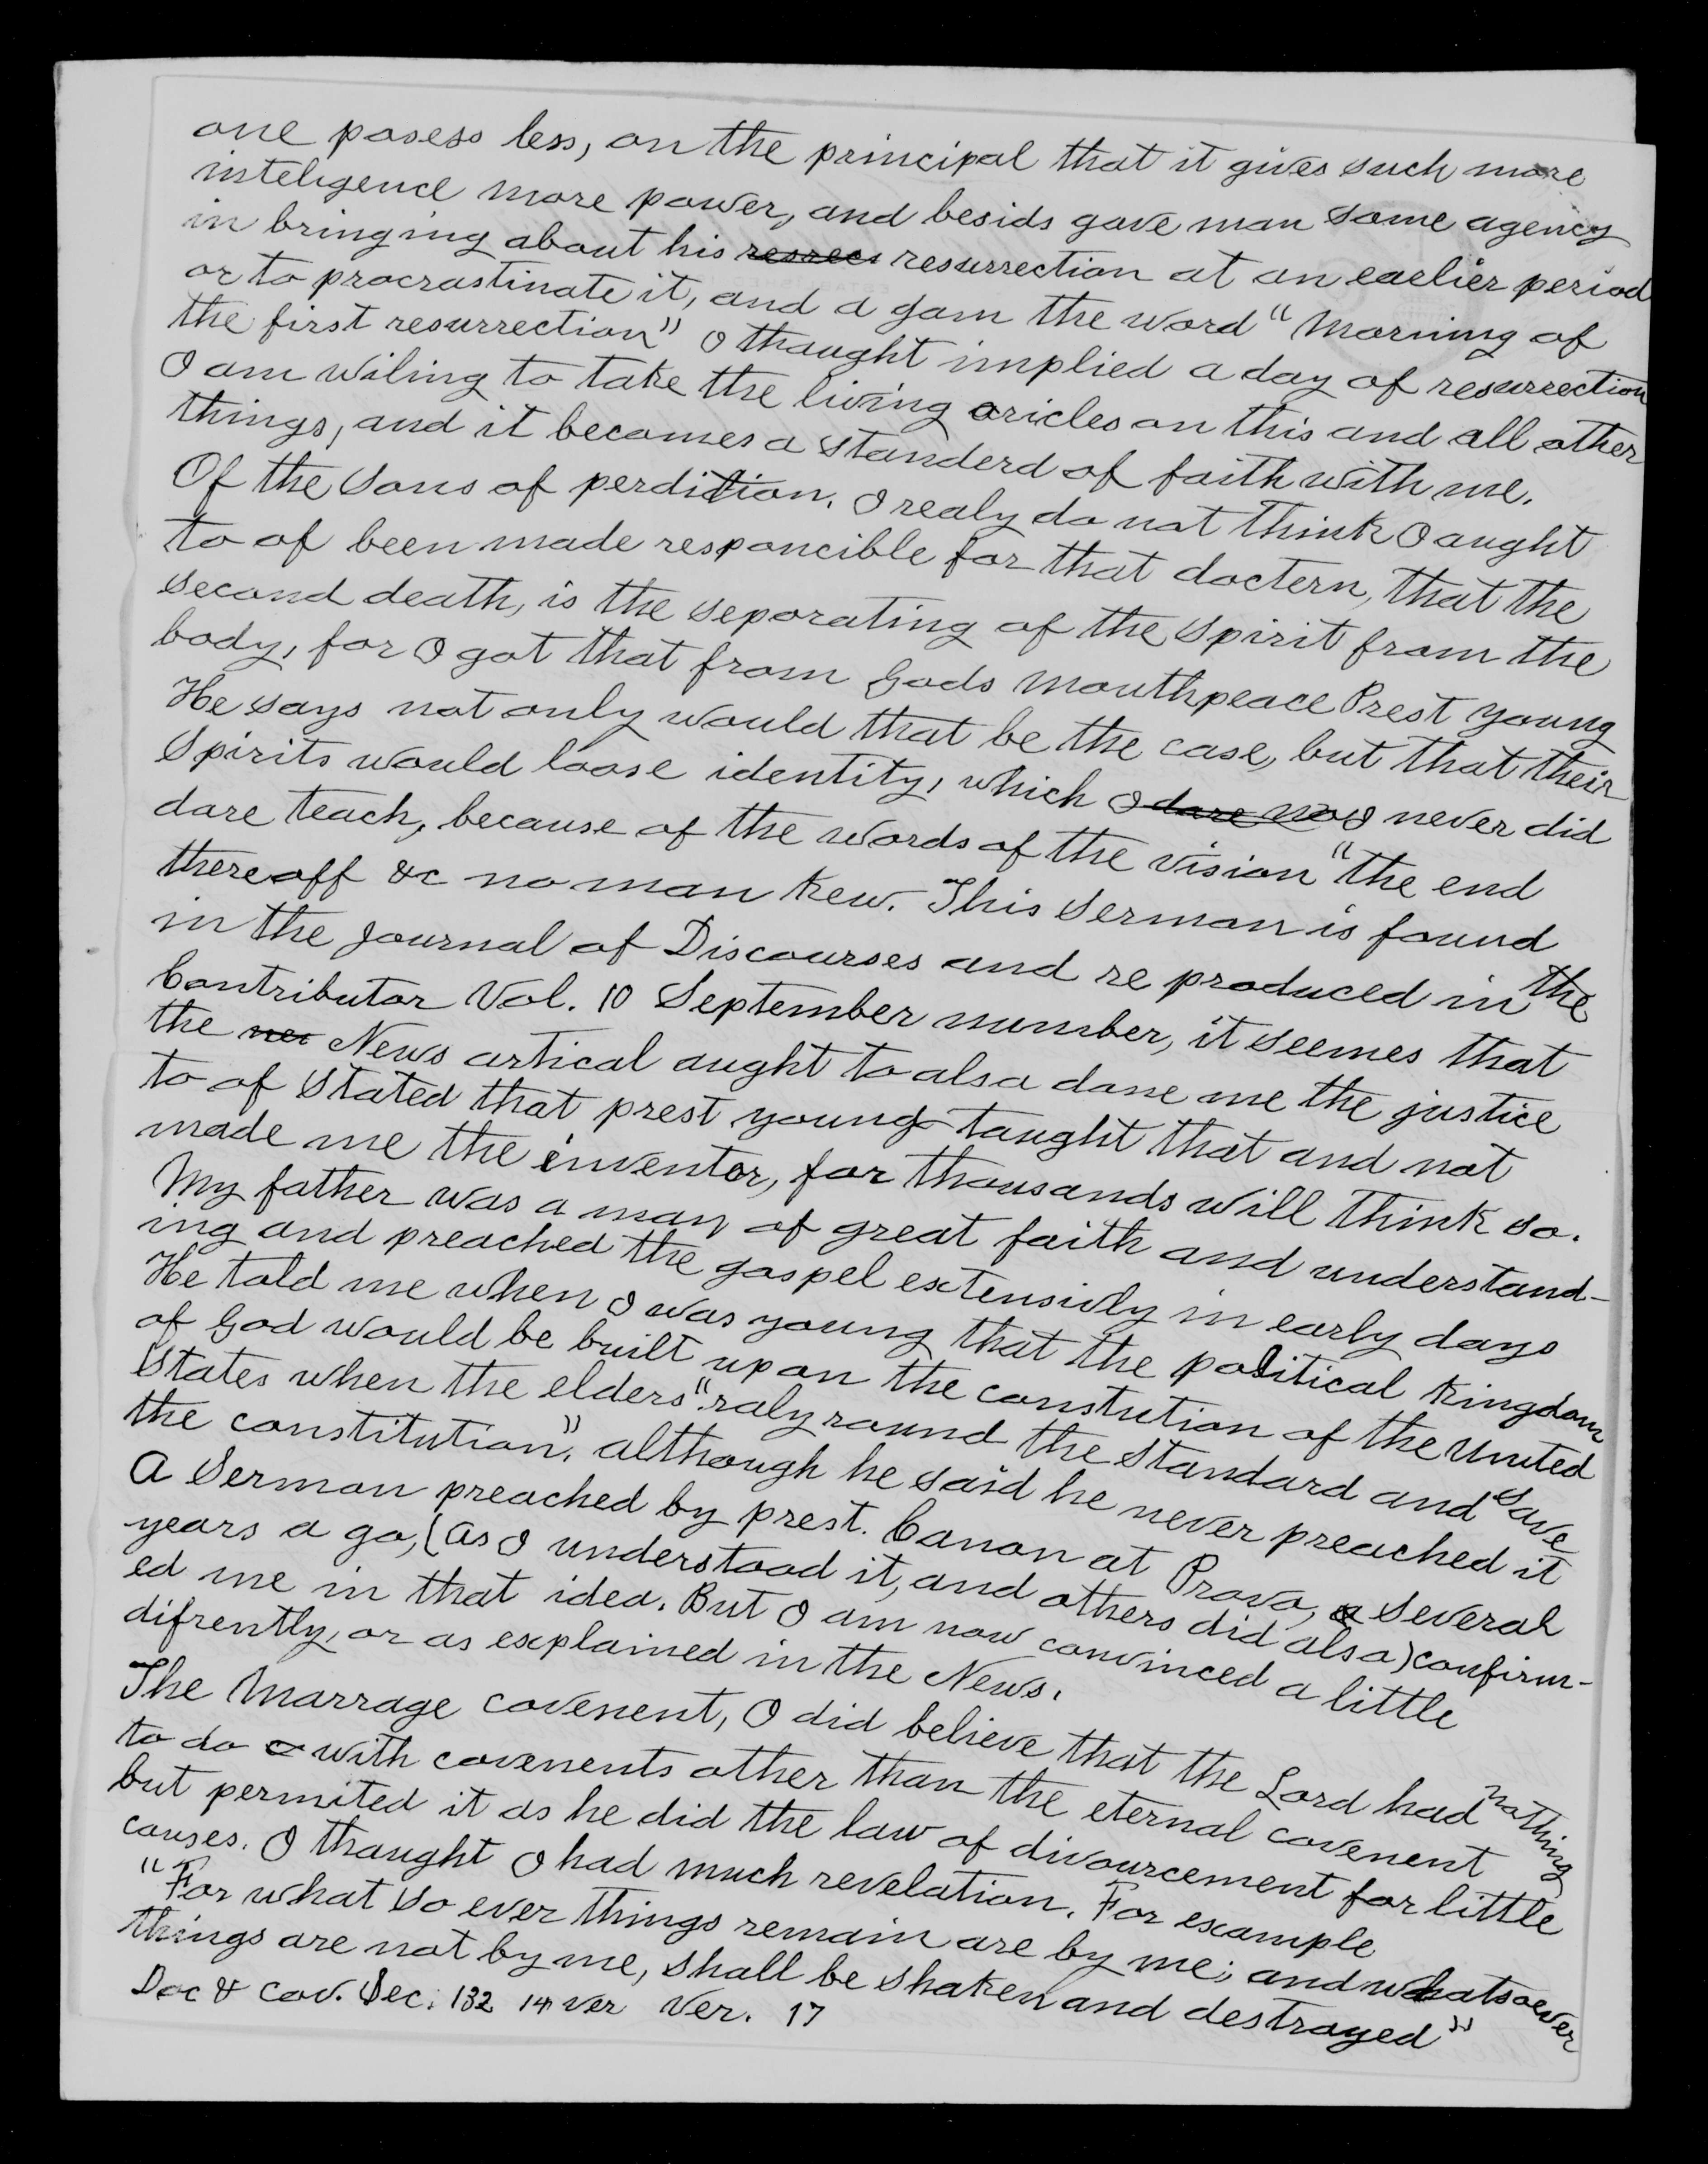 one posess less, on the principal that it gives such more
inteligence more power, and besids gave man some agency
in bringing about his resrecs resurrection at an earlier period
or to procrastinate it, and a gam the word "Morning of
the first resurrection" I thought implied a day of resurrection
I am wiling to take the living oricles on this and all other
things, and it becomes a standerd of faith with me.
Of the Sons of perdition. I realy do not think I aught
to of been made responcible for that doctern, that the
second death, is the seporating of the spirit from the
body, for I got that from Gods mouthpeace Prest young
He says not only would that be the case, but that their
Spirits would loose identity, which I dare no I never did
dare teach, because of the words of the vision "the end
thereoff &c no man kew. This Sermon is found
in the journal of Discourses and re produced in the
Contributor Vol. 10 September number, it seemes that
the nei News artical aught to also done me the justice
to of stated that prest young taught that and not
made me the inventor, for thousands will think so.
My father was a man of great faith and understand-
ing and preached the gospel extensivly in early days
He told me when I was young that the political kingdom
of God would be built upon the constution of the United
States when the elders "raly round the standard and save
the constitution", although he said he never preached it
A Sermon preached by prest. Canon at Provo, a several
years a go, (as I understood it, and others did also) confirm-
ed me in that idea. But I am now convinced a little
difrently, or as explained in the News.
The Marrage covenent, I did believe that the Lord had nothing
to do с with covenents other than the eternal covenent
but permited it as he did the law of divourcement for little
causes. I thought I had much revelation. For example
"For what so ever things remain are by me; and whatsoever
things are not by me, shall be shaken and destroyed"
Doc & Cov. Sec. 132 14 ver Ver. 17